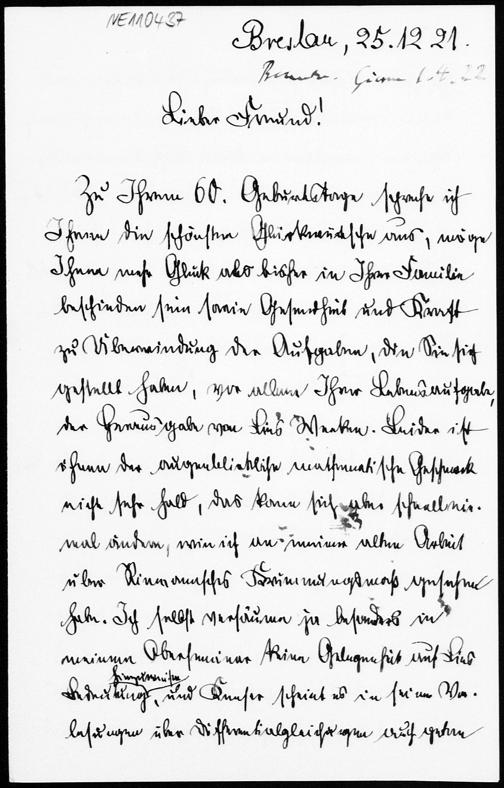 NE110437
Breslau, 25.12.21.
1.4.22
Lieber Freund!
Zu Ihrem 60. Geburtstage spreche ich
Ihnen die schönsten Glückwünsche aus, möge
Ihnen mehr Glück als bisher in Ihrer Familie
beschieden sein sowie Gesundheit und Kraft
zu Überwindung der Aufgaben, die Sie sich
gestellt haben, vor allem Ihrer Lebensaufgabe,
der Herausgabe von Lies Werken. Leider ist
ihnen der augenblickliche mathematische Geschmack
nicht sehr hold, das kann sich aber schnell ein-
mal ändern, wie ich an meiner alten Arbeit
über Riemannsches Krümmungsmaß gesehen
habe. Ich selbst versäume ja besonders in
meinem Oberseminar keine Gelegenheit auf Lies
hinzuweisen
Bedeutung, und Kneser scheint es in seinen Vor-
lesungen über Differentialgleichungen auch gern